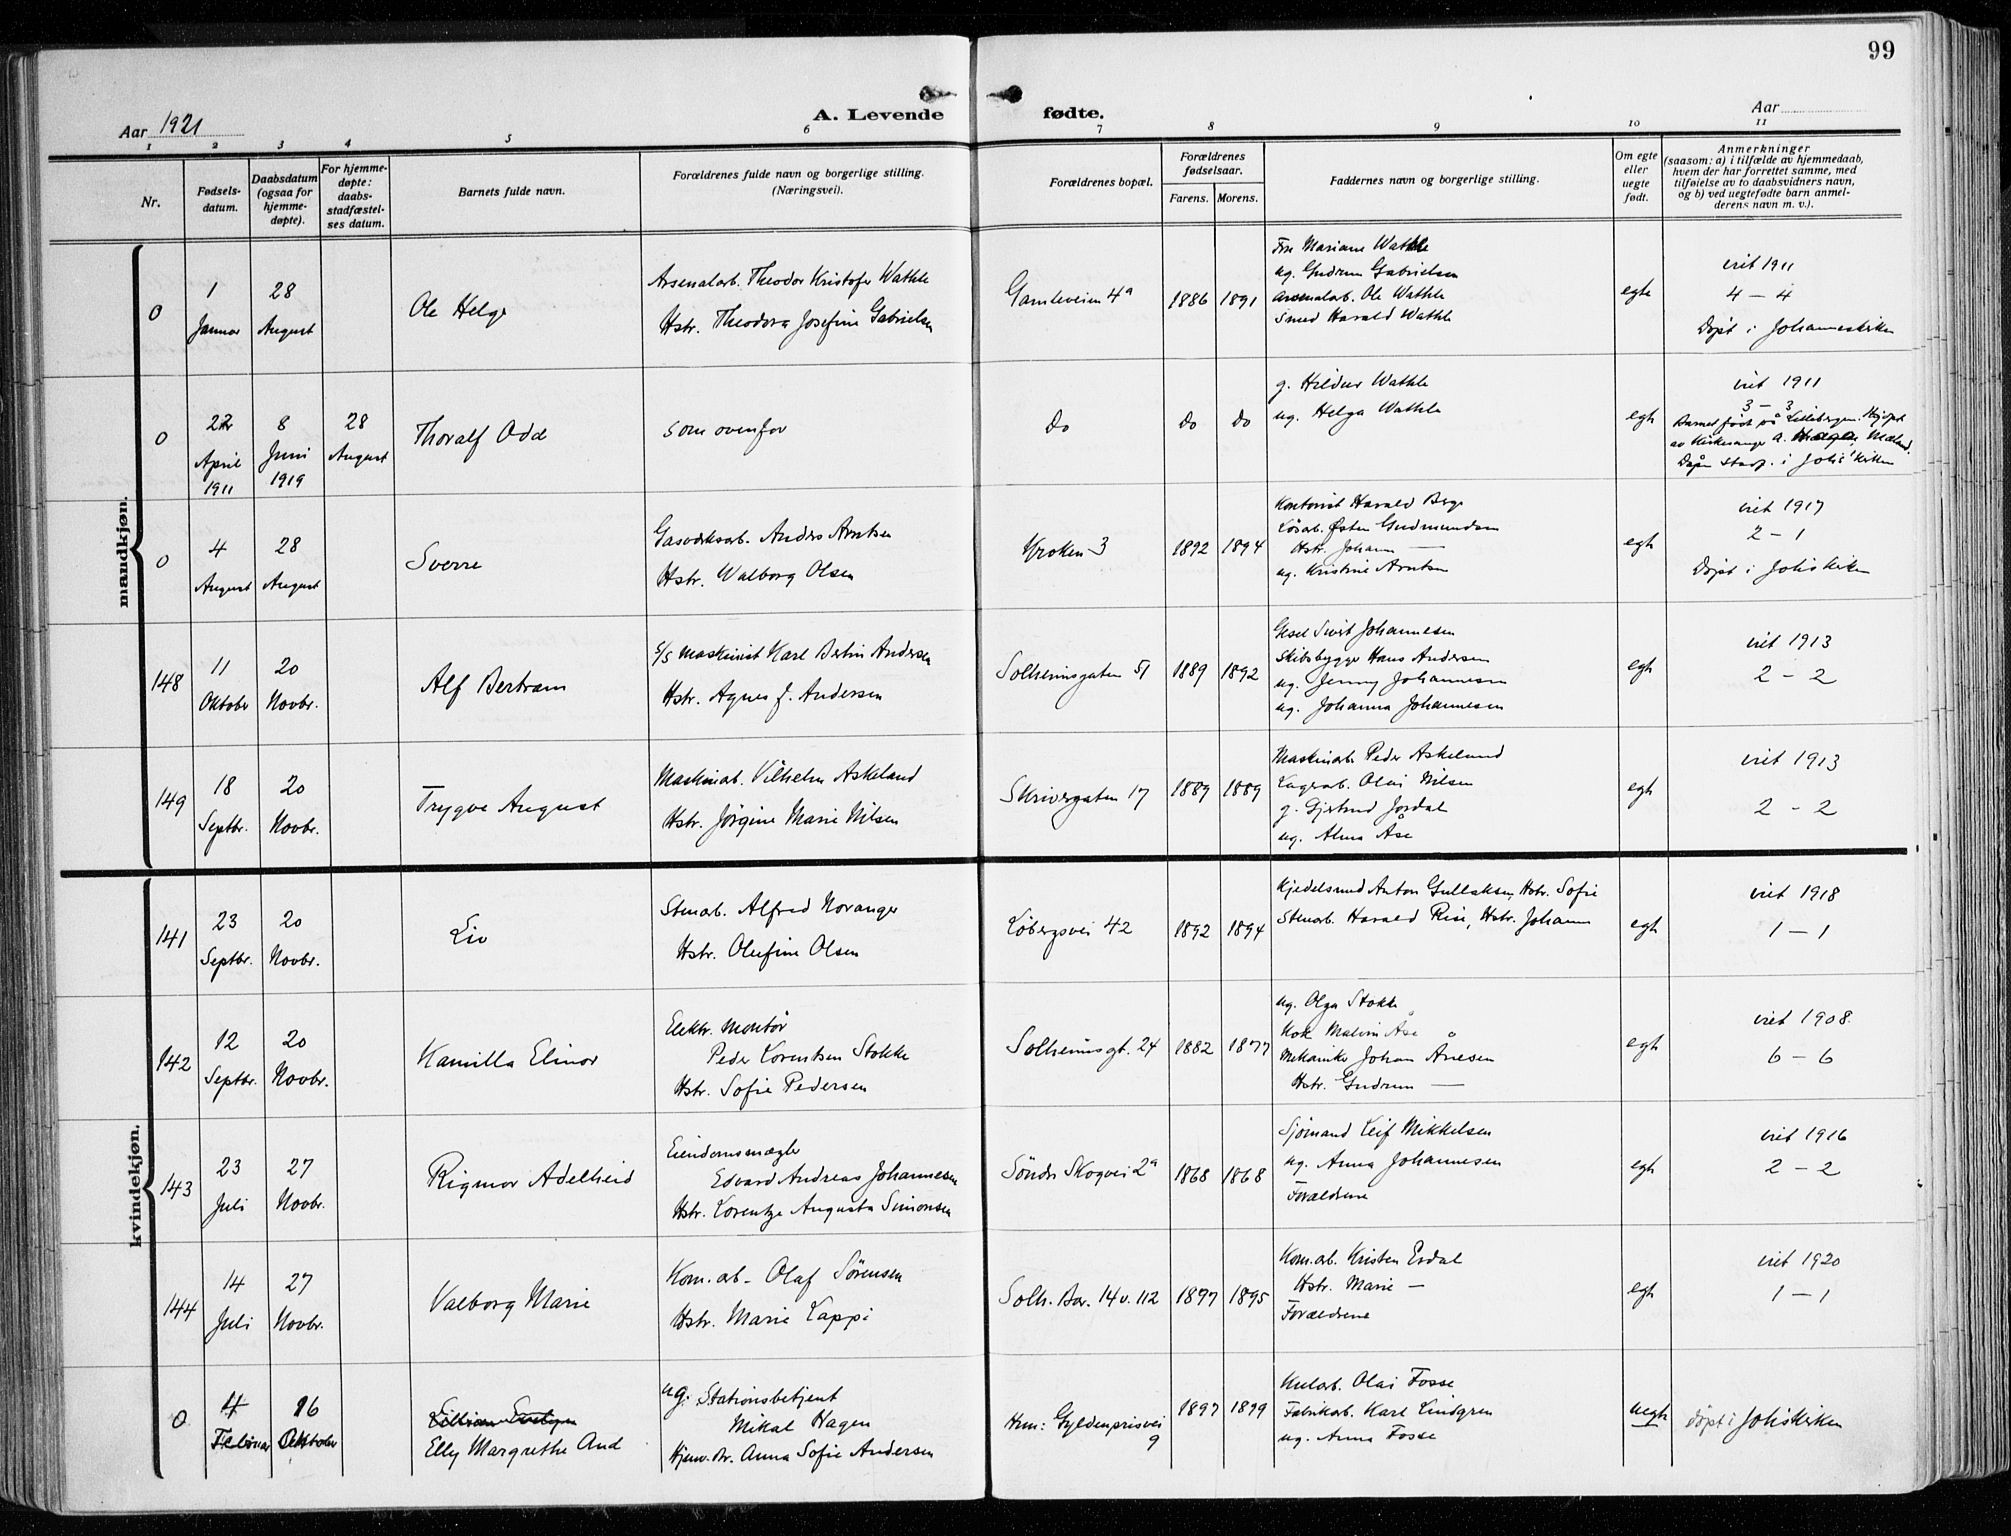 99
A. Levende fødte.
Aar 1921
Aar
1 2 3 4 5 6 7 8 9 10 11
Nr.
Fødsels-
datum.
Daabsdatum
(ogsaa for
hjemme-
døpte).
For hjemme-
døpte:
daabs-
stadfæstel-
ses datum.
Barnets fulde navn.
Forældrenes fulde navn og borgerlige stilling.
(Næringsvei).
Forældrenes bopæl.
Forældrenes
fødselsaar.
Farens. Morens.
Faddernes navn og borgerlige stilling.
Om egte
eller
uegte
født.
Anmerkninger
(saasom: a) i tilfælde av hjemmedaab,
hvem der har forrettet samme, med
tilføielse av to daabsvidners navn,
og b) ved uegtefødte barn anmel-
derens navn m. v.).
mandkjøn.
0
1
Januar
28
August
Ole Helge
Arsenalarb. Theodor Kristofer Wathle
Hstr. Theodora Josefine Gabrielsen
Gamleveien 4a
1886 1891
Fru Mariane Wathle
ug. Gudrun Gabrielsen
Arsenalarb. Ole Wathle
Smed Harald Wathle
egte
viet 1911
4 – 4
Døpt i Johanneskirken
0
April
1911
8
Juni
1919
28
August
Thoralf Odd
som ovenfor
do
do do
g. Hildur Wathle
ug. Helga Wathle
egte
viet 1911
3 – 3
Barnet født på
av Kirkesanger A. Mæland.
i Johs' kirken
0
4
August
28
August
Sverre
Gasverksarb. Anders Arntsen
Hstr. Walborg Olsen
Kroken 3
1892 1894
Kontorist Harald Berge
Løsarb. Østen Gudmundsen
Hstr. Johanne —
ug. Kristine Arntsen
egte
viet 1917
2 – 1
Døpt i Johs kirken
148
11
Oktober
20
Novbr.
Alf Bertram
S/S Maskinist Karl Bertin Andersen
Hstr. Agnes J. Andersen
Solheimsgaten 51
1889 1892
Gesel Sivert Johannesen
Skibsbygger Hans Andersen
ug. Jenny Johannesen
ug. Johanna Johannesen
egte
viet 1913
2 – 2
149
18
Septbr.
20
Novbr.
Trygve August
Maskinarb. Vilhelm Askeland
Hstr. Jørgine Marie Nilsen
Skivergaten 17
1889 1889
Maskinarb. Peder Askelund
Lagerarb. Olai Nilsen
g. Gjertrud Jordal
ug. Alma Åse
egte
viet 1913
2 – 2
kvindekjøn.
141
23
Septbr.
20
Novbr.
Liv
Stenarb. Alfred Noranger
Hstr. Olufine Olsen
Løbergsvei 42
1892 1894
Kjedelsmed Anton Gullaksen, Hstr. Sofie
Stenarb. Harald Rise, Hstr. Johanne
egte
viet 1918
1 – 1
142
12
Septbr.
20
Novbr.
Kamilla Elinor
Elektr. montør
Peder Lorentsen Stokke
Hstr. Sofie Pedersen
Solheimsgt. 24
1882 1877
ug. Olga Stokke
Kok Malvin Åse
Mekaniker Johan Anesen
Hstr. Gudrun —
egte
viet 1908.
6 – 6
143
23
Juli
27
Novbr.
Rigmor Adelheid
Eiendomsmægler
Edvard Andreas Johannesen
Hstr. Lorentze Augusta Simonsen
Søndr Skogvei 2a
1868 1868
Sjømand Leif Mikkelsen
ug. Anna Johannesen
Forældrene
egte
viet 1916
2 – 2
144
14
Juli
27
Novbr.
Valborg Marie
Kom.arb. Olaf Sørensen
Hstr. Marie Lappi
Solh. Bar. 14 v. 112
1897 1895
Kom.arb. Kristen Erdal
Hstr. Marie —
Forældrene
egte
viet 1920
1 – 1
0
4
Februar
16
Oktober
Lillian Evelyn
Elly Margrethe Aud
ug. Stationsbetjent
Mikal Hagen
Hjemv. Br. Anna Sofie Andersen
Hun: Gyldenprisvei
9
1897 1899
Kularb. Olai Fosse
Fabrikarb. Karl Lindgren
ug. Anna Fosse
uegte
døpt i Johs kirken